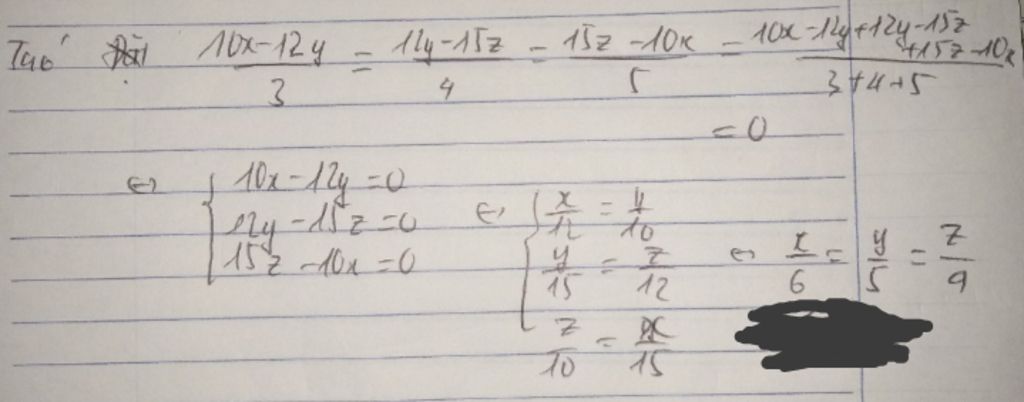 Ta có 10x-12y/3 = 12y-15z/4 = 15z-10x/5 = 10x-12y+12y-15z+15z-10x/3+4+5
= 0
⇔ { 10x-12y=0
12y-15z=0
15z-10x=0
⇔ { x/12 = y/10
y/15 = z/12
z/10 = x/15
⇔ x/6 = y/5 = z/4